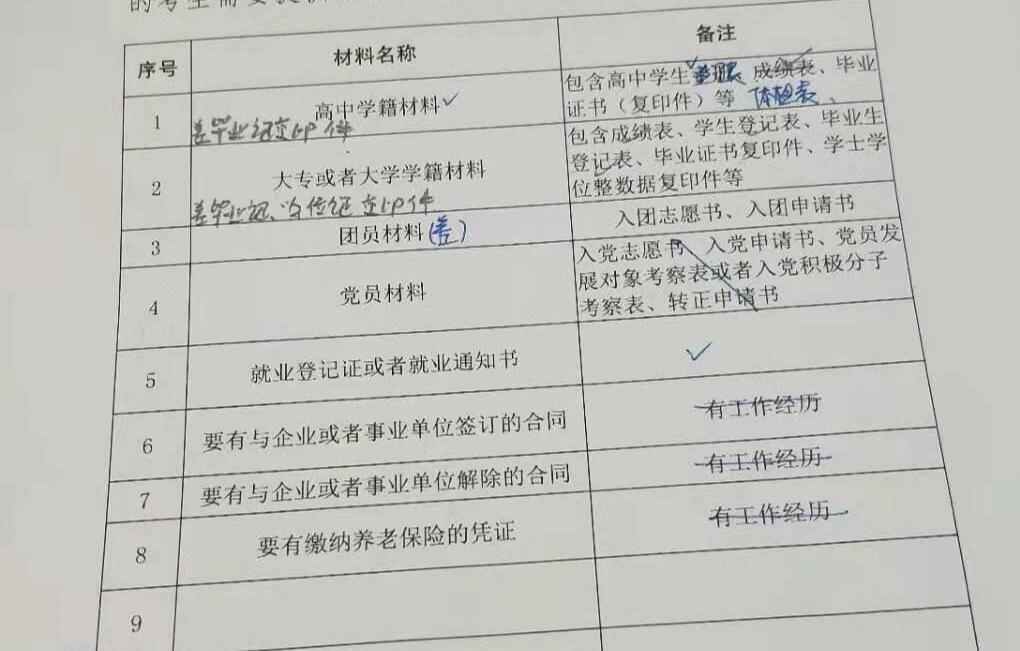 的考生需要
序号 材料名称 备注
1 高中学籍材料✓ 包含高中学生 成绩表、毕业
证书（复印件）等 体检表、
差毕业证复印件
2 大专或者大学学籍材料 包含成绩表、学生登记表、毕业生
登记表、毕业证书复印件、学士学
位整数据复印件等
差毕业证、学位证复印件
3 团员材料(差) 入团志愿书、入团申请书
4 党员材料 入党志愿书、入党申请书、党员发
展对象考察表或者入党积极分子
考察表、转正申请书
5 就业登记证或者就业通知书 ✓
6 要有与企业或者事业单位签订的合同 有工作经历
7 要有与企业或者事业单位解除的合同 有工作经历
8 要有缴纳养老保险的凭证 有工作经历
9